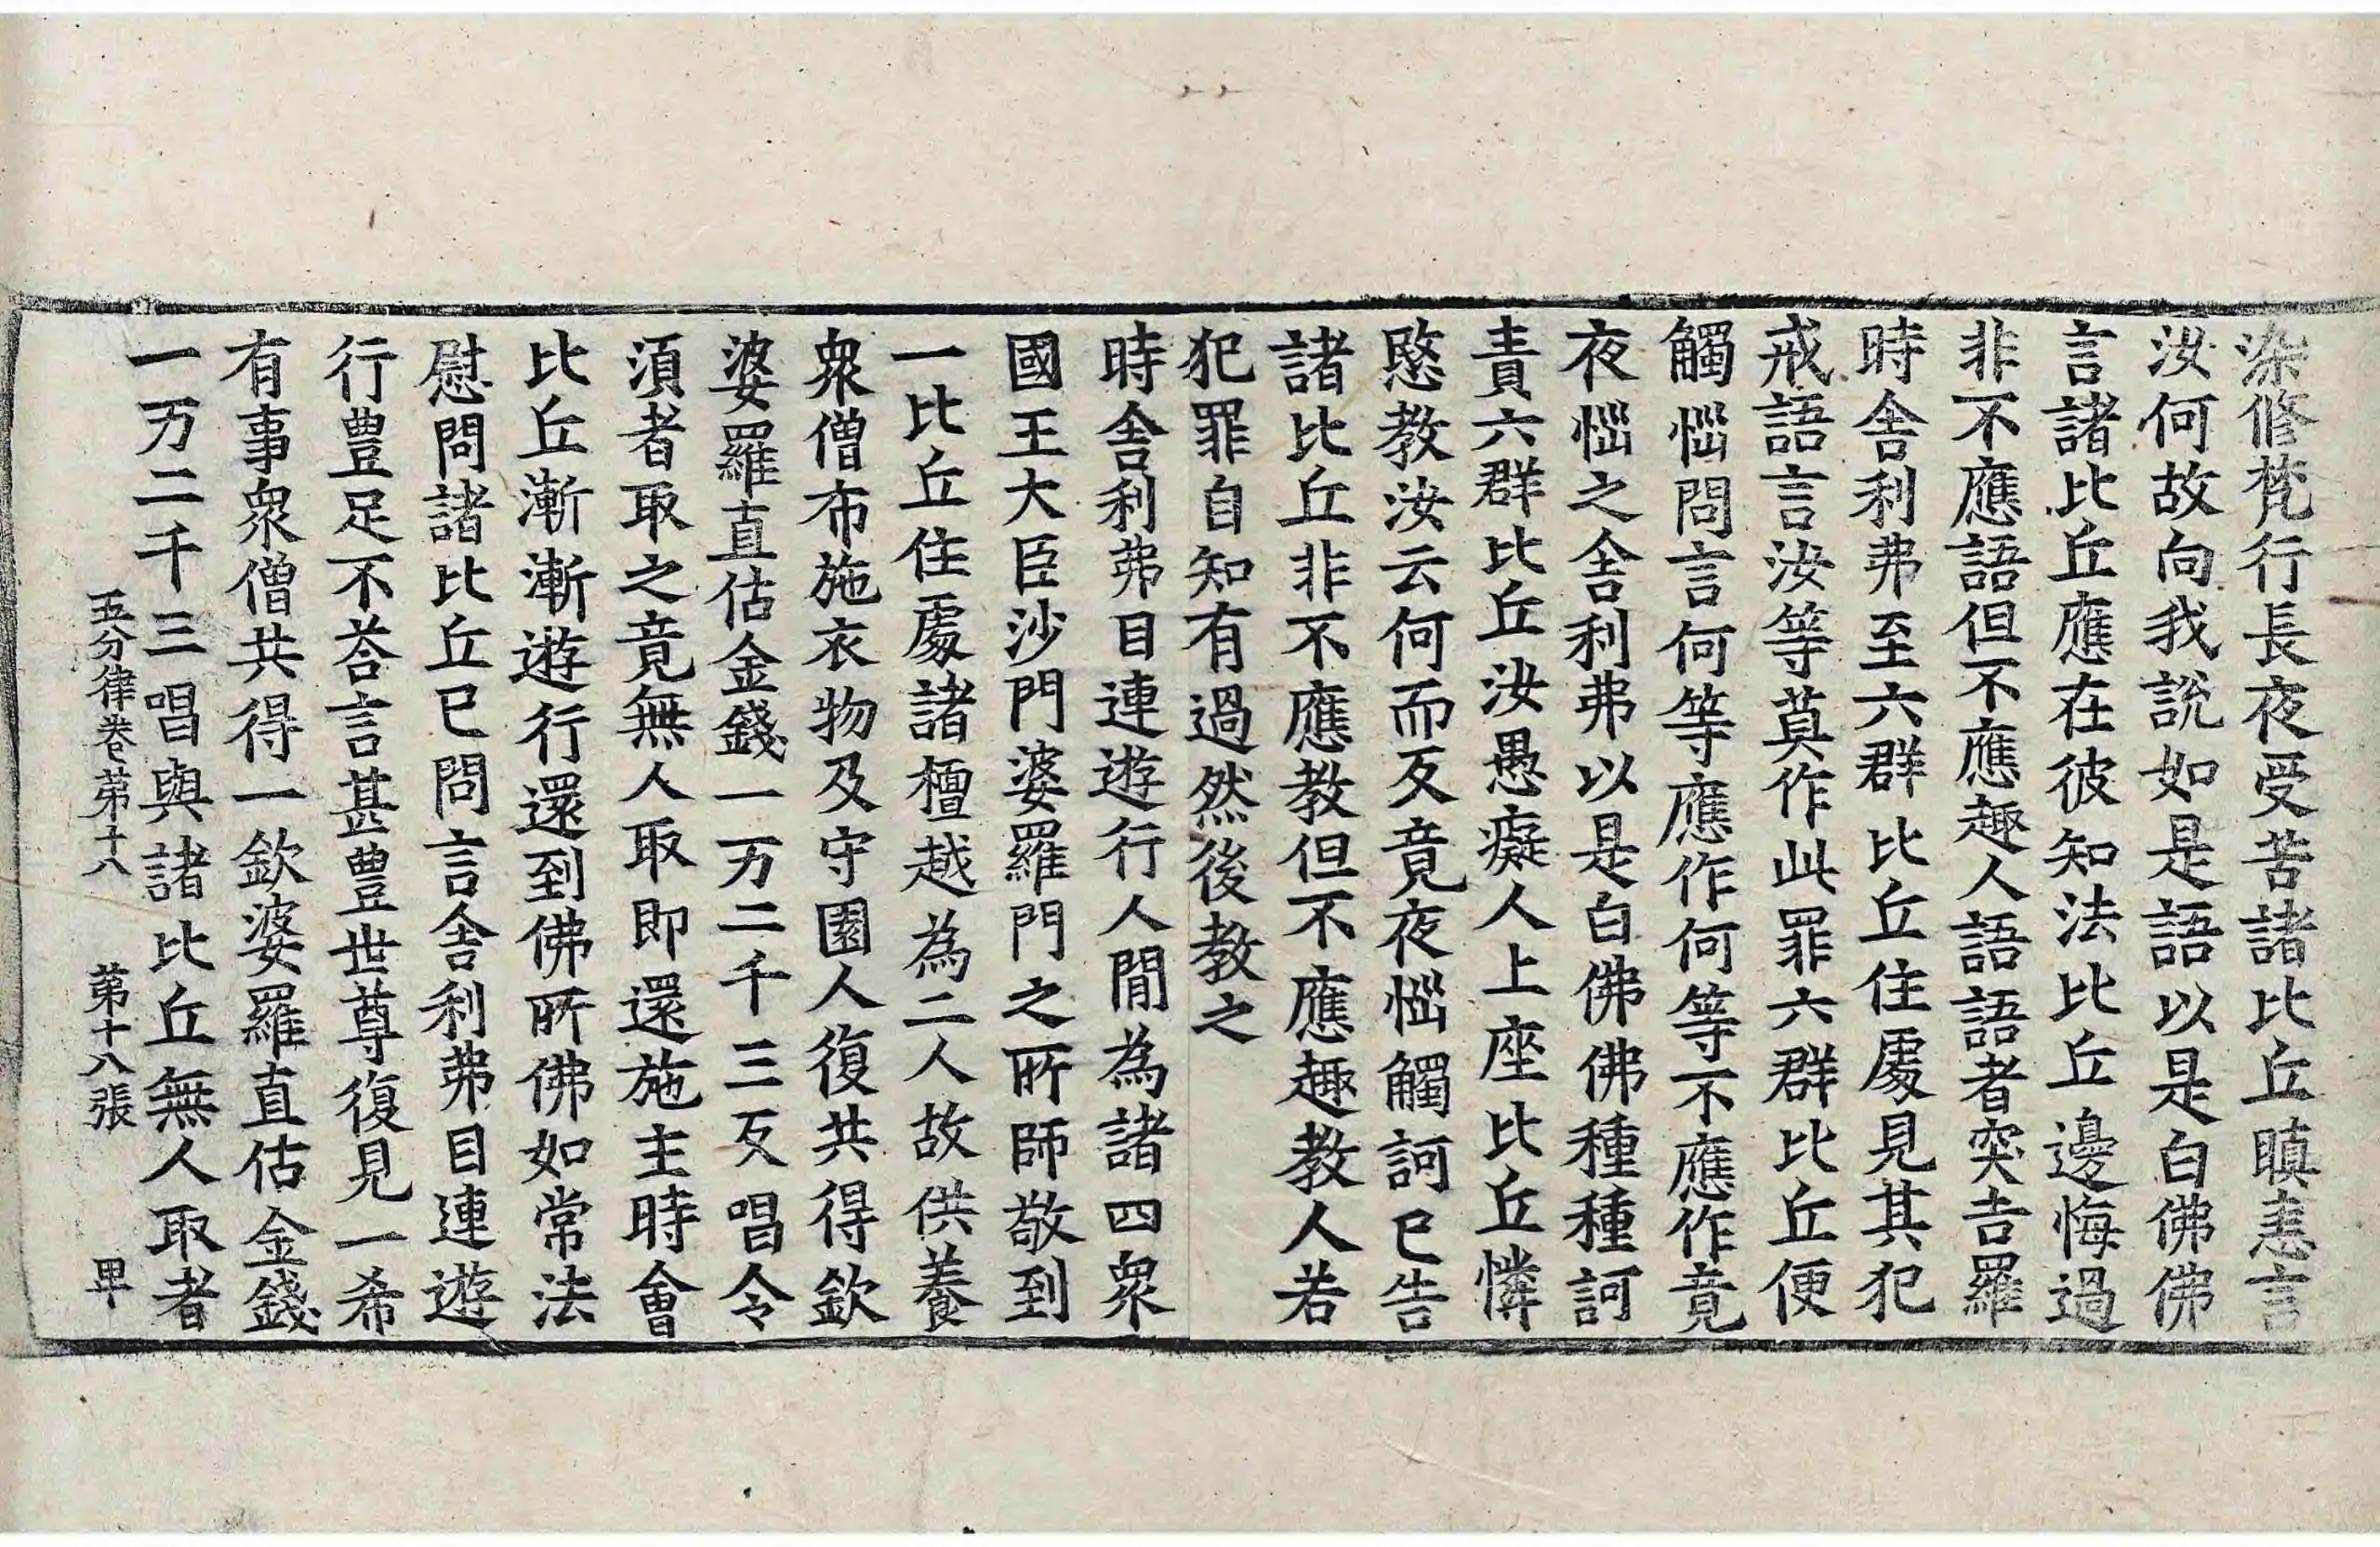 染修梵行長夜受苦諸比丘瞋恚言
汝何故向我說如是語以是白佛佛
言諸比丘應在彼知法比丘邊悔過
非不應語但不應趣人語語者突吉羅
時舍利弗至六群比丘住處見其犯
戒語言汝等莫作此罪六群比丘便
觸惱問言何等應作何等不應作竟
夜惱之舍利弗以是白佛佛種種訶
責六群比丘汝愚癡人上座比丘憐
愍教汝云何而反竟夜惱觸訶已告
諸比丘非不應教但不應趣教人若
犯罪自知有過然後教之
時舍利弗目連遊行人間為諸四眾
國王大臣沙門婆羅門之所師敬到
一比丘住處諸檀越為二人故供養
眾僧布施衣物及守園人復共得欽
婆羅直估金錢一万二千三反唱令
須者取之竟無人取即還施主時會
比丘漸漸遊行還到佛所佛如常法
慰問諸比丘已問言舍利弗目連遊
行豐足不荅言甚豐世尊復見一希
有事眾僧共得一欽婆羅直估金錢
一万二千三唱與諸比丘無人取者
五分律卷第十八 第十八張 甲